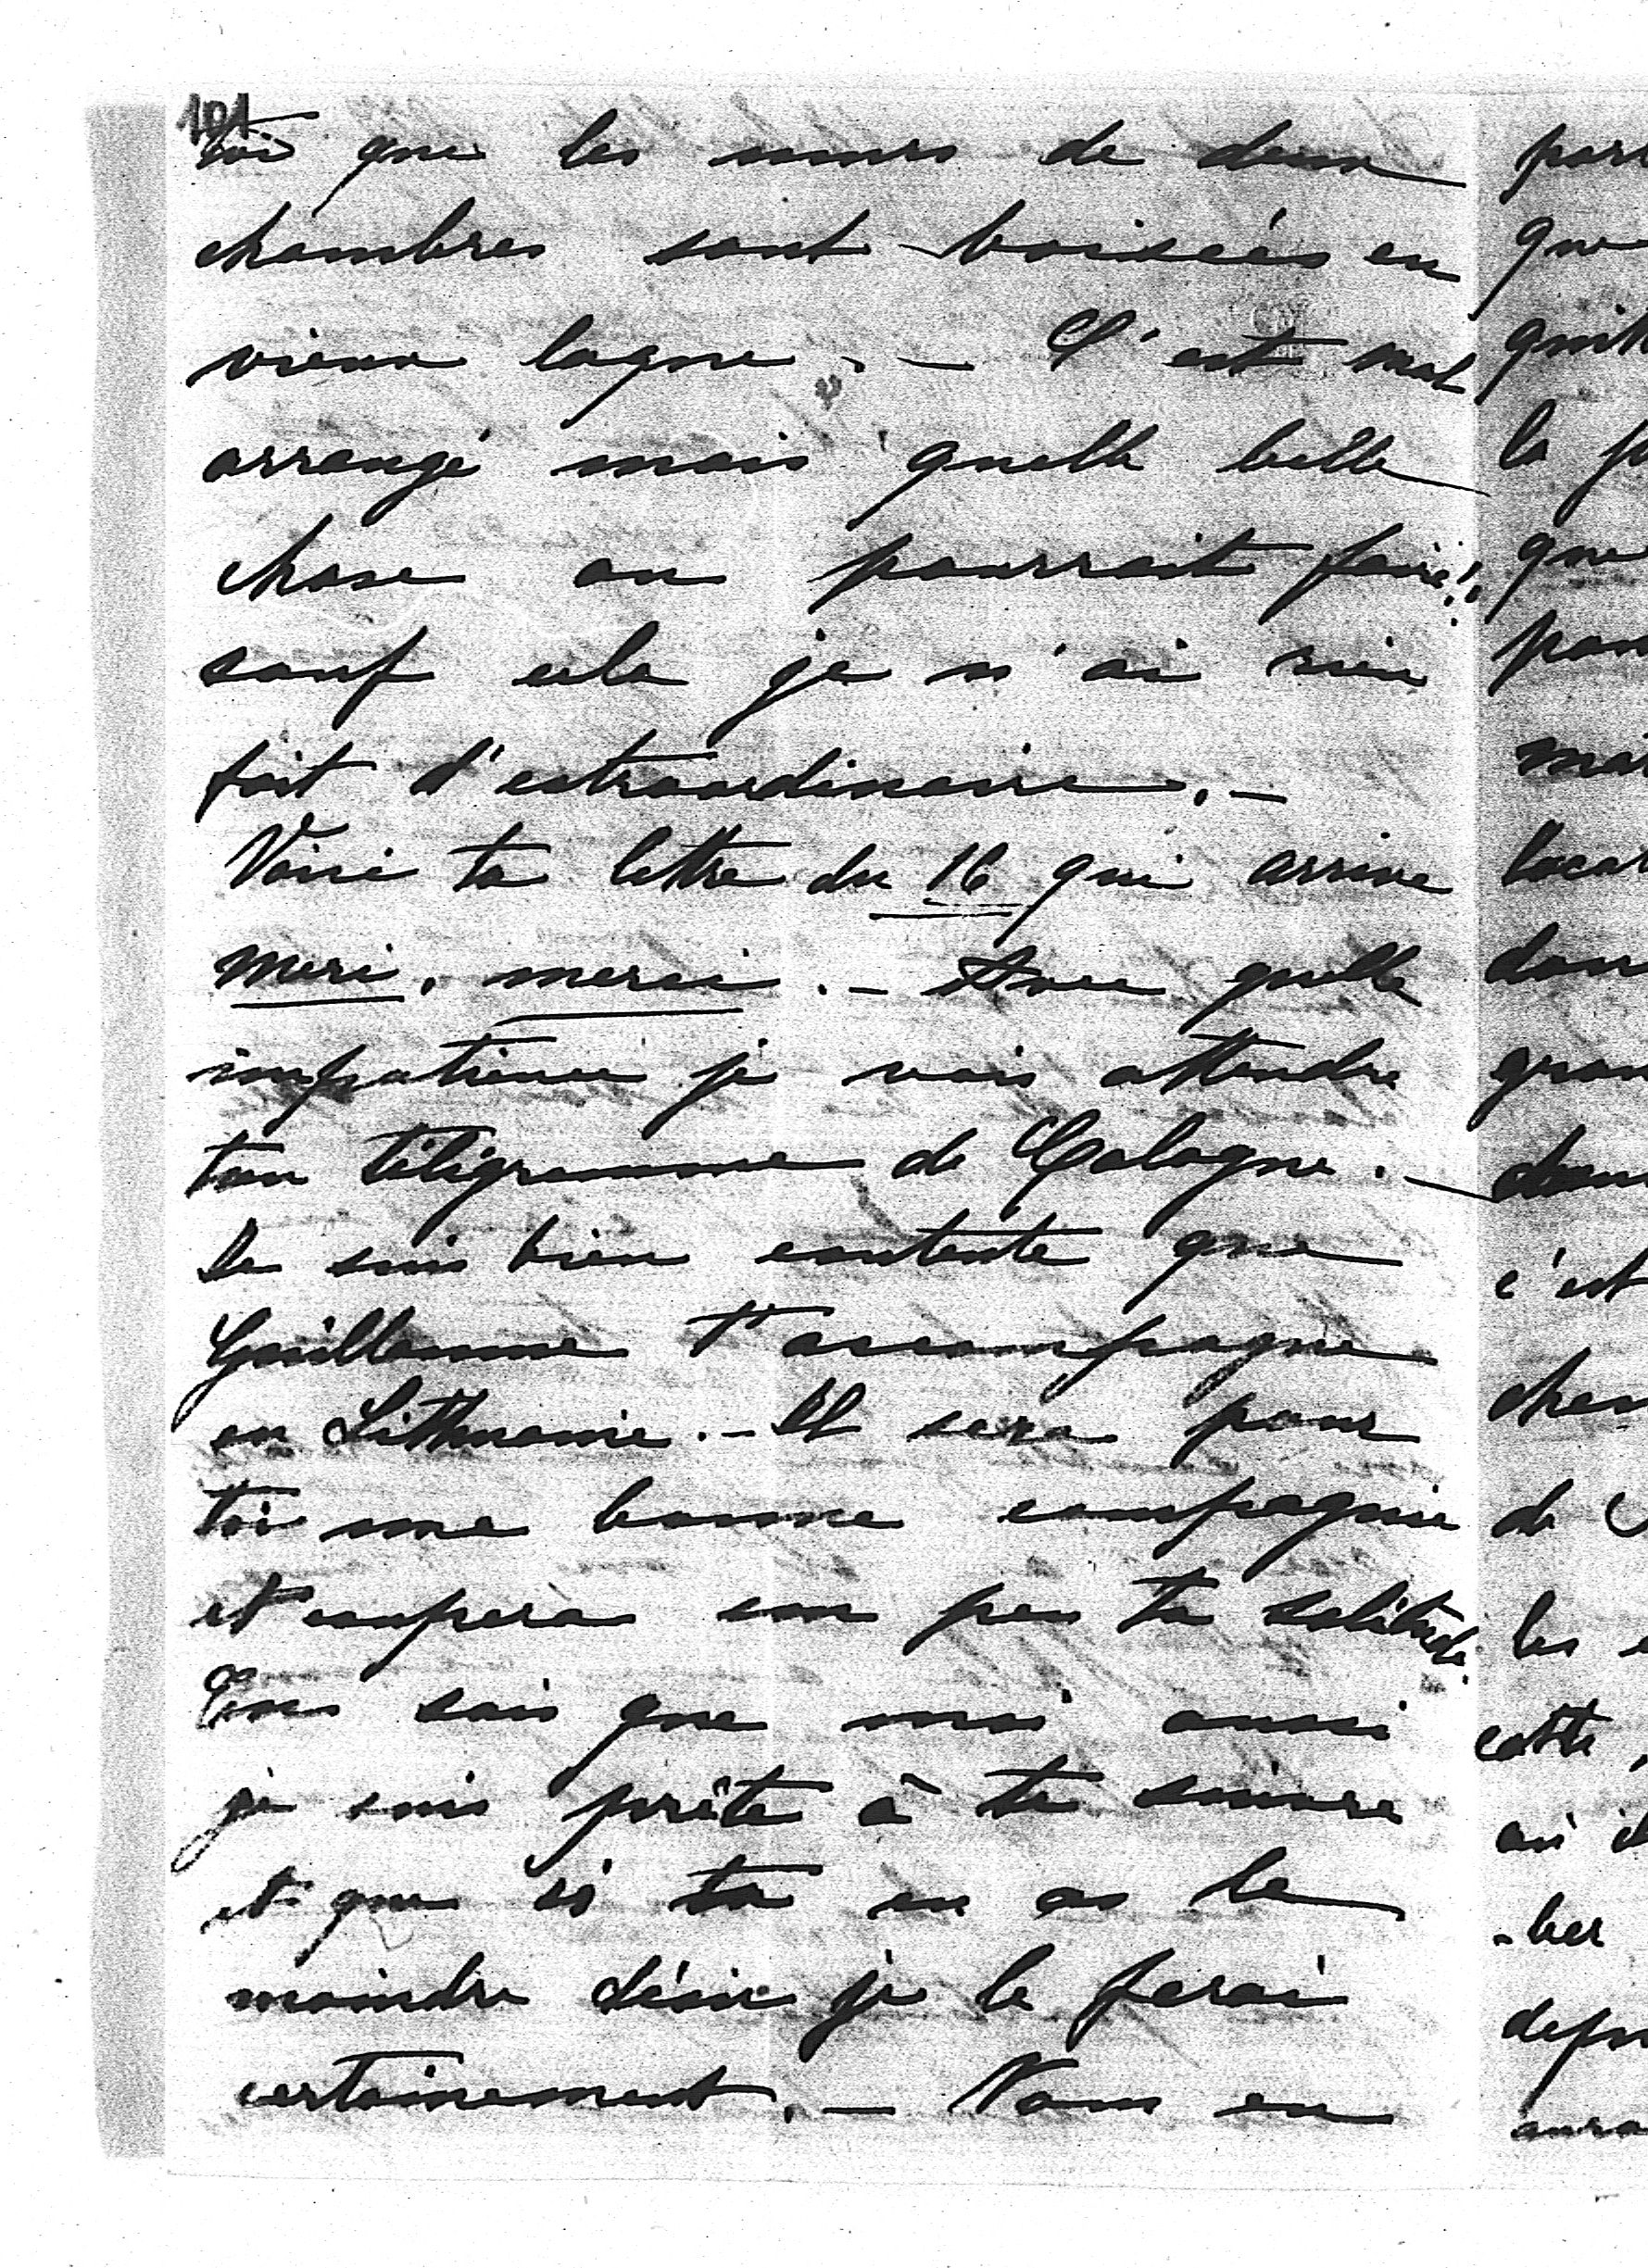 101.
toi que les murs de deux
chambres sont boisées en
vieux laque. – C'est mal
arrangé mais quelle belle
chose on pourrait faire!!
sauf cela je n'ai rien
fait d'extraordinaire. –
Voici ta lettre du 16 qui arrive
merci, merci. – Avec quelle
impatience je vais attendre
ton télégramme de Cologne. –
Je suis bien contente que
Guillaume t'accompagne
en Lithuanie. – Il sera pour
toi une bonne compagnie
et coupera un peu ta solitude.
Tu sais que moi aussi
je suis prête à te suivre
et que si tu en as le
moindre désir je le ferai
certainement. – Nous en
que
la
que
mai
dou
c'est
de
les
cette
où
-ber